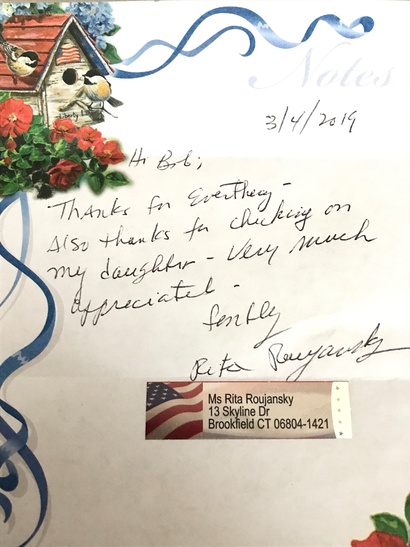 Notes
3/4/2019
Hi Bob;
Thanks for Everthing -
Also thanks for checking on
my daughter - Very much
appreciated -
Rita Roujansky
Ms Rita Roujansky
13 Skyline Dr
Brookfield CT 06804-1421